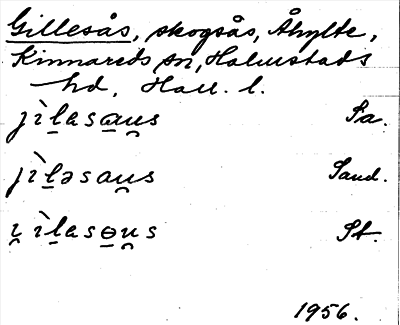 Gillesås, skogsås, Åhylte,
Kinnareds sn, Halmstads
hd, Hall. l.
jìḻasa̱u̯s Pa.
jìḻəsau̯s Sand.
i̯ìḻasɵ̱u̯s St.
1956.